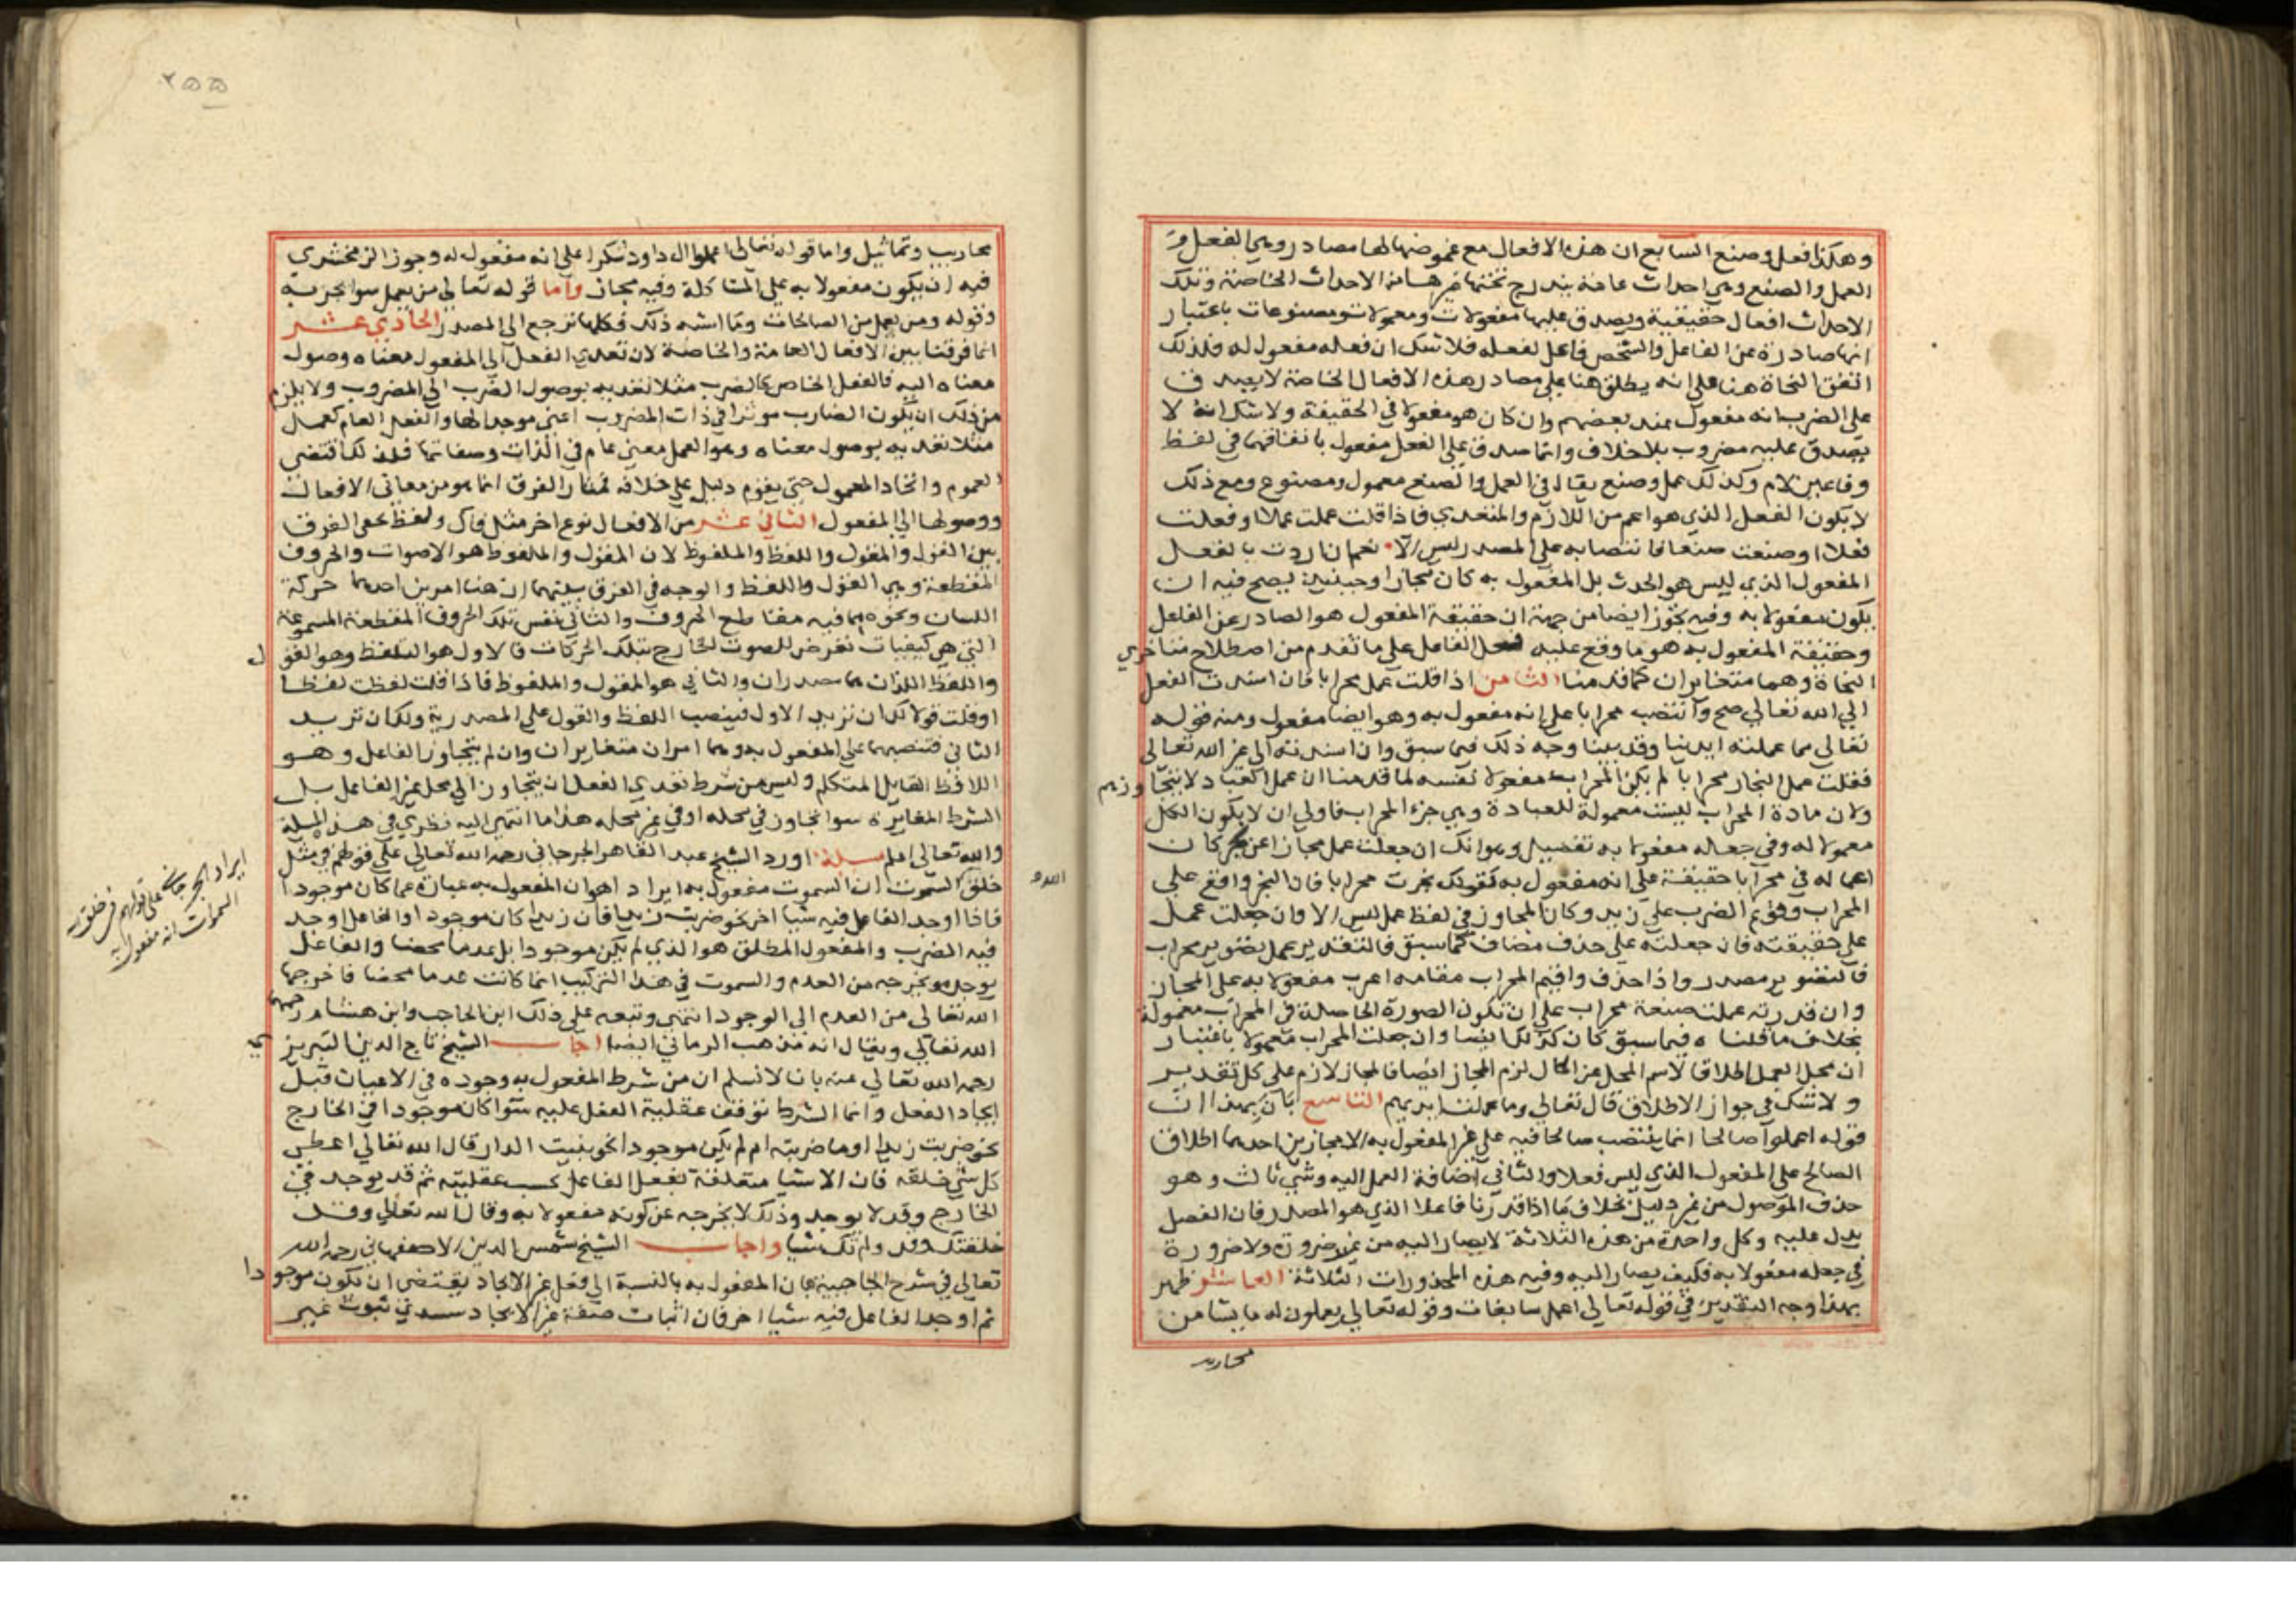 وهكذا فعل وصنع السابع ان هذه الافعال مع عمومها لها مصادر وهي الفعل و
العمل والصنع وهي احداث عامة يندرج تحتها غيرها من الاحداث الخاصة وتلك
الاحداث افعال حقيقية ويصدق عليها مفعولات ومعمولات ومصنوعات باعتبار
انها صادرة عن الفاعل والشخص فاعل لفعله فلا شك ان فعله مفعول له فلذلك
اتفق النحاة هنا على انه يطلق هنا على مصادر هذه الافعال الخاصة لا يصدق
على الضرب انه مفعول عند بعضهم وان كان هو مفعولا في الحقيقة ولا شك انه لا
يصدق عليه مضروب بلا خلاف وانما صدق على الفعل مفعول باتفاقهما في لفظ
وفا عين لام وكذلك عمل وصنع يقال في العمل والصنع معمول ومصنوع ومع ذلك
لا يكون الفعل الذي هو اعم من اللازم والمتعدي فاذا قلت عملت عملا او فعلت
فعلا او صنعت صنعا فانتصابه على المصدر ليس الا نعم ان اردت بالفعل
المفعول الذي ليس هو الحدث بل المفعول به كان مجازا وحينئذ يصح فيه ان
يكون مفعولا به وفيه تجوز ايضا من جهة ان حقيقة المفعول هو الصادر عن الفاعل
وحقيقة المفعول به هو ما وقع عليه فعل الفاعل على ما تقدم من اصطلاح متاخري
النحاة وهما متغايران كما قدمنا الثامن اذا قلت عمل محرابا فان اسندت الفعل
الى الله تعالى صح وانتصب محرابا على انه مفعول به وهو ايضا مفعول ومنه قوله
تعالى مما عملته ايدينا وقد بينا وجه ذلك فيما سبق وان اسندته الى غير الله تعالى
فقلت عمل النجار محرابا لم يكن المحراب مفعولا نفسه لما قدمنا ان عمل العباد لا يتجاوزهم
ولان مادة المحراب ليست معمولة للعباد وهي جزء المحراب فاولى ان لا يكون الكل
معمولا له وفي جعله مفعولا به تفصيل وهو انك ان جعلت عمل مجازا عن نجر كان
اعماله في محرابا حقيقة على انه مفعول به كقولك نجرت محرابا فان النجر واقع على
المحراب وقوع الضرب على زيد وكان المجاز في لفظ عمل ليس الا وان جعلت عمل
على حقيقته فان جعلته على حذف مضاف كما سبق فالتقدير عمل تصوير محراب
فالتصوير مصدر واذا حذف واقيم المحراب مقامه اعرب مفعولا به على المجاز
وان قدرته عملت صنعة محراب على ان تكون الصورة الحاصلة في المحراب معمولة
بخلاف ما قلناه فيما سبق كان كذلك ايضا وان جعلت المحراب معمولا باعتبار
ان محل العمل اطلاقا لاسم المحل على الحال لزم المجاز ايضا فالمجاز لازم على كل تقدير
ولا شك في جواز الاطلاق قال تعالى وما عملت ايديهم التاسع بان بهذا ان
قوله اعملوا صالحا انما ينتصب صالحا فيه على غير المفعول به الا بمجازين احدهما اطلاق
الصالح على المفعول الذي ليس فعلا والثاني اضافة العمل اليه وشي ثالث وهو
حذف الموصول من غير دليل بخلاف ما اذا قدرنا فاعلا الذي هو المصدر فان الفعل
يدل عليه وكل واحدة من هذه الثلاثة لا يصار اليه من غير ضرورة ولا ضرورة
في جعله مفعولا به فكيف يصار اليه وفيه هذه المحذورات الثلاثة العاشر ظهر
بهذا وجه التقدير في قوله تعالى اعمل سابغات وقوله تعالى يعملون له ما يشا من
محاريب
٢٥٥
محاريب وتماثيل واما قوله تعالى اعملوا ال داود شكرا على انه مفعول له وجوز الزمخشري
فيه ان يكون مفعولا به على المشاكلة وفيه مجاز واما قوله تعالى من يعمل سوا يجز به
وقوله ومن يعمل من الصالحات وما اشبه ذلك فكلها ترجع الى المصدر الحادي عشر
انما فرقنا بين الافعال العامة والخاصة لان تعدي الفعل الى المفعول معناه وصول
معناه اليه فالفعل الخاص كالضرب مثلا تعديه بوصول الضرب الى المضروب ولا يلزم
من ذلك ان يكون الضارب موثرا في ذات المضروب اعني موجدا لها والفعل العام كعمل
مثلا تعديه بوصول معناه وهو العمل معنى عام في الذات وصفاتها فلذلك اقتضى
العموم واتحاد المعمول حتى يقوم دليل على خلافه فمثار الفرق انما هو من معاني الافعال
ووصولها الى المفعول الثاني عشر من الافعال نوع اخر مثل قال ولفظ يخفى الفرق
بين القول والمقول واللفظ والملفوظ لان المقول والملفوظ هو الاصوات والحروف
المقطعة وهي القول واللفظ والوجه في الفرق بينهما ان هنا امرين احدهما حركة
اللسان ونحوه بما فيه مقاطع الحروف والثاني نفس تلك الحروف المقطعة المسموعة
التي هي كيفيات تعرض للصوت الخارج بتلك الحركات فالاول هو التلفظ وهو القول
واللفظ اللذان هما مصدران والثاني هو المقول والملفوظ فاذا قلت لفظت لفظا
او قلت قولا لك ان تريد الاول فينصب اللفظ والقول على المصدرية ولك ان تريد
الثاني فتنصبهما على المفعول به وهما امران متغايران وان لم يتجاوز الفاعل وهو
اللافظ القايل المتكلم وليس من شرط تعدي الفعل ان يتجاوز الى محل غير الفاعل بل
الشرط المغايرة سوا تجاوز في محله او في غير محله هذا ما انتهى اليه نظري في هذه المسلة
والله تعالى اعلم مسلة اورد الشيخ عبد القاهر الجرجاني رحمه الله تعالى على قولهم في مثل
خلق الله السموت ان السموت مفعول به ايرادا هو ان المفعول به عبارة عما كان موجودا
فاذا اوجد الفاعل فيه شيا اخر نحو ضربت زيدا فان زيدا كان موجودا والفاعل اوجد
فيه الضرب والمفعول المطلق هو الذي لم يكن موجودا بل عدما محضا والفاعل
يوجده ويخرجه من العدم والسموت في هذا التركيب انما كانت عدما محضا فاخرجها
الله تعالى من العدم الى الوجود انتهى وتبعه على ذلك ابن الحاجب وابن هشام رحمهما
الله تعالى ويقال انه مذهب الرماني ايضا اجاب الشيخ تاج الدين التبريزي
رحمه الله تعالى عنه بانا لا نسلم ان من شرط المفعول به وجوده في الاعيان قبل
ايجاد الفعل وانما الشرط توقف عقلية الفعل عليه سوا كان موجودا في الخارج
نحو ضربت زيدا او ما ضربته ام لم يكن موجودا نحو بنيت الدار قال الله تعالى اعطى
كل شي خلقه فان الاشيا متعلقة بفعل الفاعل بحسب عقليته ثم قد يوجد في
الخارج وقد لا يوجد وذلك لا يخرجه عن كونه مفعولا به وقال الله تعالى وقد
خلقتك من قبل ولم تك شيا واجاب الشيخ شمس الدين الاصفهاني رحمه الله
تعالى في شرح الحاجبية بان المفعول به بالنسبة الى فعل غير الايجاد يقتضي ان يكون موجودا
ثم اوجد الفاعل فيه شيا اخر فان اثبات صفة غير الايجاد يستدعي ثبوت غير
ايراد الجرجاني على قولهم في خلق الله
السموات انه مفعول به